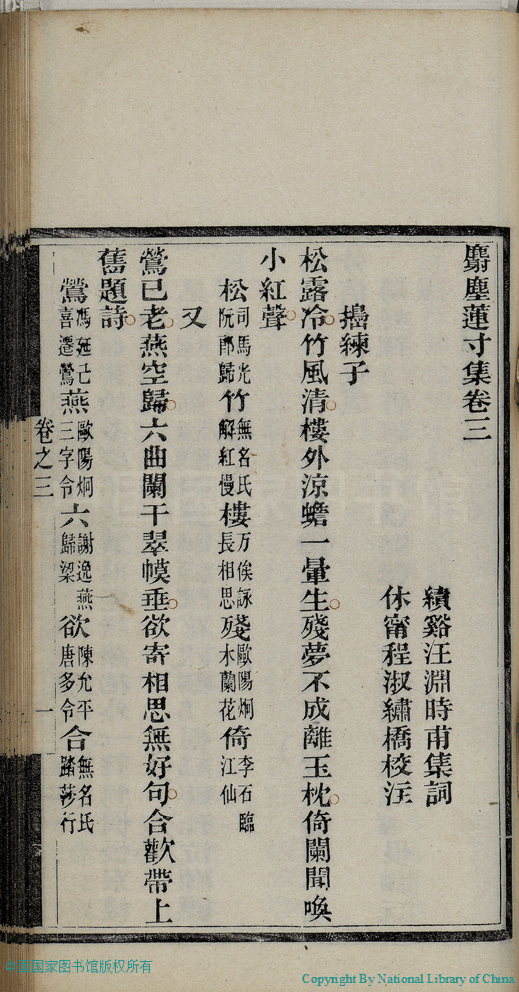 麝塵蓮寸集卷三
績谿汪淵時甫集詞
休甯程淑繡橋校注
搗練子
松露冷竹風清樓外涼蟾一暈生殘夢不成離玉枕倚闌聞喚
小紅聲
松司馬光阮郎歸竹無名氏解紅慢樓万俟詠長相思殘歐陽炯木蘭花倚李石臨江仙
又
鶯已老燕空歸六曲闌干翠幙垂欲寄相思無好句合歡帶上
舊題詩
鶯馮延巳喜遷鶯燕歐陽炯三字令六謝逸燕歸梁欲陳允平唐多令合無名氏踏莎行
卷之三
一
中国国家图书馆版权所有
Copyright By National Library of China